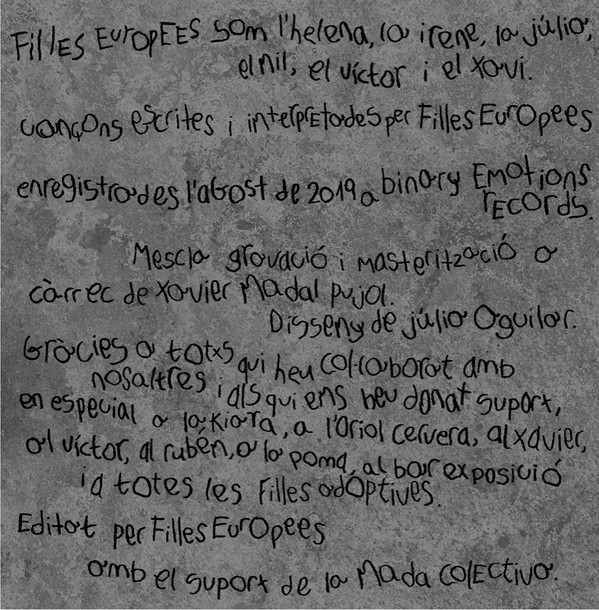 Filles EuropEES som l'helena, la irene, la júlia,
el nil, el víctor i el xavi.
cançons escrites i interpretades per Filles Europees
enregistrades l'agost de 2019 a binary Emotions
records.
Mescla gravació i masterització a
càrrec de xavier Nadal pujol.
Disseny de júlia Aguilar.
Gràcies a totxs qui heu col·laborat amb
nosaltres i als qui ens heu donat suport,
en especial a la kiara, a l'Oriol cervera, al xavier,
al víctor, al rubén, a la poma, al bar exposició
i a totes les Filles adoptives.
Editat per Filles Europees
amb el suport de la Nada colectiva.